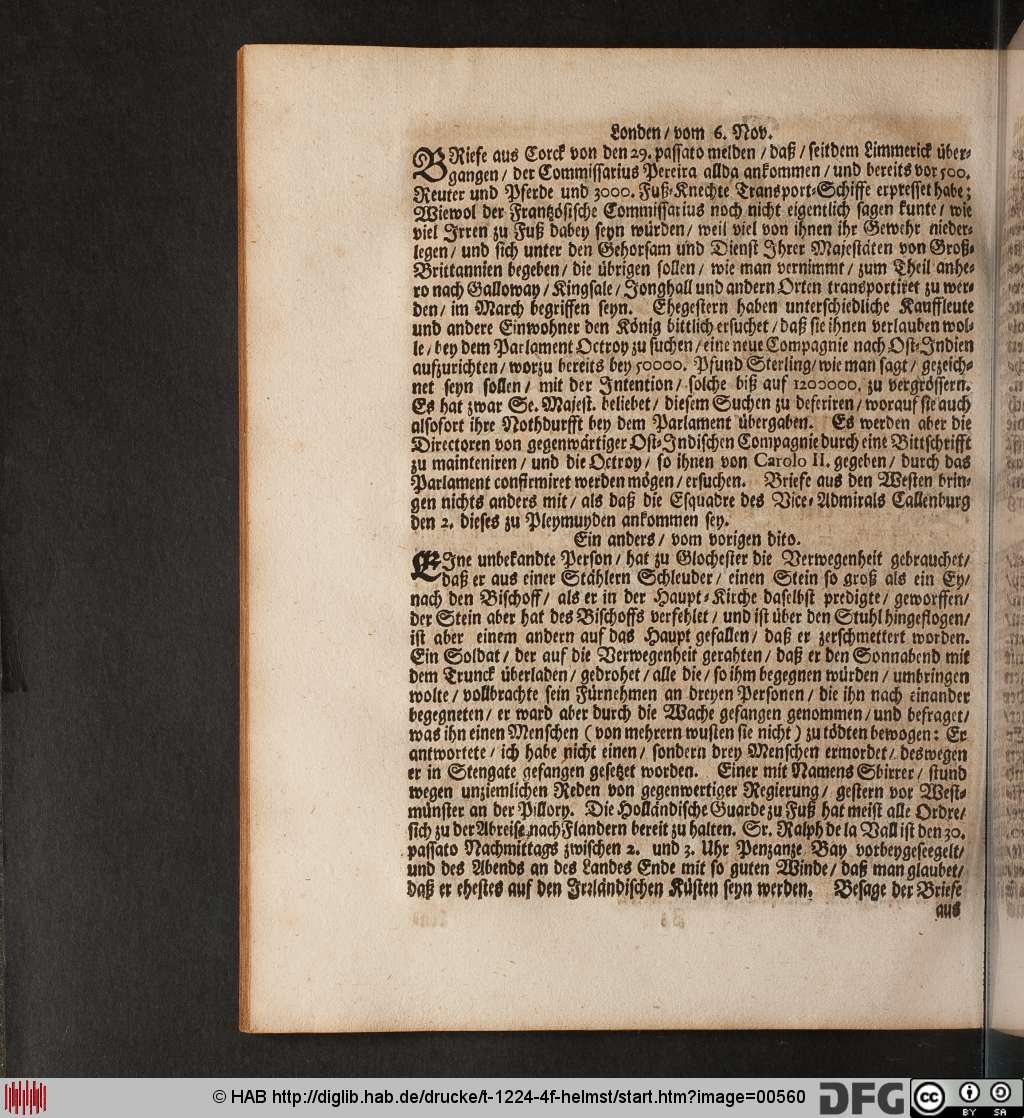 Londen / vom 6. Nov.
BRiefe aus Corck von den 29. passato melden / daß / seitdem Limmerick über-
gangen / der Commissarius Pereira allda ankommen / und bereits vor 500.
Reuter und Pferde und 3000. Fuß-Knechte Transport-Schiffe erpresset habe;
Wiewol der Frantzösische Commissarius noch nicht eigentlich sagen kunte / wie
viel Irren zu Fuß dabey seyn würden / weil viel von ihnen ihr Gewehr nieder-
legen / und sich unter den Gehorsam und Dienst Ihrer Majestäten von Groß-
Brittannien begeben / die übrigen sollen / wie man vernimmt / zum Theil anhe-
ro nach Galloway / Kingsale / Jonghall und andern Orten transportiret zu wer-
den / im March begriffen seyn. Ehegestern haben unterschiedliche Kauffleute
und andere Einwohner den König bittlich ersuchet / daß sie ihnen verlauben wol-
le / bey dem Parlament Octroy zu suchen / eine neue Compagnie nach Ost-Indien
aufzurichten / worzu bereits bey 50000. Pfund Sterling / wie man sagt / gezeich-
net seyn sollen / mit der Intention / solche biß auf 1200000. zu vergrössern.
Es hat zwar Se. Majest. beliebet / diesem Suchen zu deferiren / worauf sie auch
alsofort ihre Nothdurfft bey dem Parlament übergaben. Es werden aber die
Directoren von gegenwärtiger Ost-Indischen Compagnie durch eine Bittschrifft
zu mainteniren / und die Octroy / so ihnen von Carolo II. gegeben / durch das
Parlament confirmiret werden mögen / ersuchen. Briefe aus den Westen brin-
gen nichts anders mit / als daß die Esquadre des Vice-Admirals Callenburg
den 2. dieses zu Pleymuyden ankommen sey.
Ein anders / vom vorigen dito.
EIne unbekandte Person / hat zu Glochester die Verwegenheit gebrauchet /
daß er aus einer Stählern Schleuder / einen Stein so groß als ein Ey /
nach den Bischoff / als er in der Haupt-Kirche daselbst predigte / geworffen /
der Stein aber hat des Bischoffs verfehlet / und ist über den Stuhl hingeflogen /
ist aber einem andern auf das Haupt gefallen / daß er zerschmettert worden.
Ein Soldat / der auf die Verwegenheit gerahten / daß er den Sonnabend mit
dem Trunck überladen / gedrohet / alle die / so ihm begegnen würden / umbringen
wolte / vollbrachte sein Fürnehmen an dreyen Personen / die ihn nach einander
begegneten / er ward aber durch die Wache gefangen genommen / und befraget /
was ihn einen Menschen ( von mehrern wusten sie nicht ) zu tödten bewogen: Er
antwortete / ich habe nicht einen / sondern drey Menschen ermordet / deswegen
er in Stengate gefangen gesetzet worden. Einer mit Namens Sbirrer / stund
wegen unziemlichen Reden von gegenwertiger Regierung / gestern vor West-
münster an der Pillory. Die Holländische Guarde zu Fuß hat meist alle Ordre /
sich zu der Abreise nach Flandern bereit zu halten. Sr. Ralph de la Vall ist den 30.
passato Nachmittags zwischen 2. und 3. Uhr Penzanze Bay vorbeygeseegelt /
und des Abends an des Landes Ende mit so guten Winde / daß man glaubet /
daß er ehestes auf den Irrländischen Küsten seyn werden. Besage der Briefe
aus
© HAB http://diglib.hab.de/drucke/t-1224-4f-helmst/start.htm?image=00560
DFG
cc
BY SA